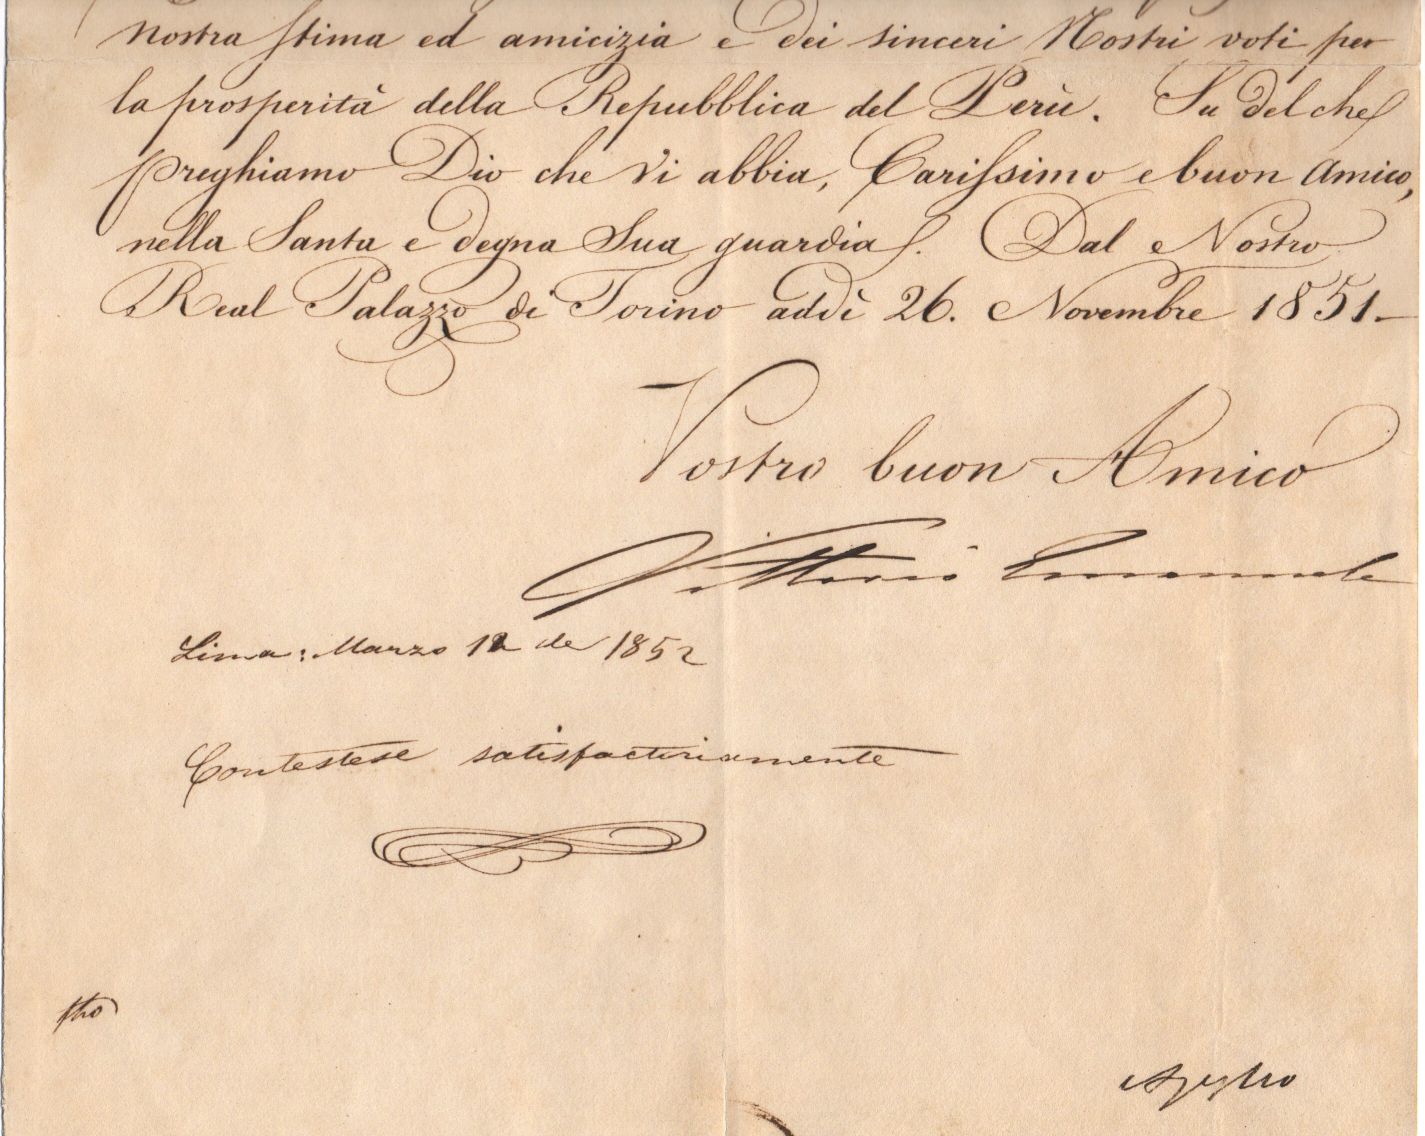 nostra stima ed amicizia e dei sinceri Nostri voti per
la prosperità della Repubblica del Perù. Su del che
preghiamo Dio che Vi abbia, Carissimo e buon Amico,
nella Santa e degna Sua guardia. Dal Nostro
Real Palazzo di Torino addì 26. Novembre 1851.
Vostro buon Amico
Vittorio Emanuele
Lima: Marzo 12 de 1852
Contestese satisfactoriamente
fho
Azeglio